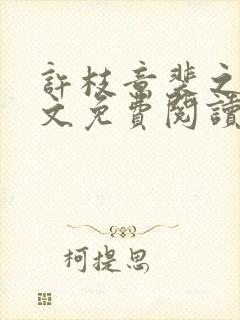 許枝意裴之
文免費閱讀
柯提思